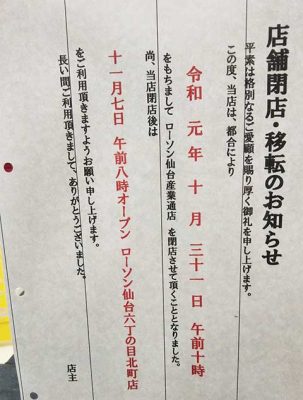 店舗閉店・移転のお知らせ
平素は格別なるご愛顧を賜り厚く御礼を申し上げます。
この度、当店は、都合により
令和 元年 十月 三十一日 午前十時
をもちまして ローソン仙台産業通店 を閉店させて頂くこととなりました。
尚、当店閉店後は
十一月七日 午前八時オープン ローソン仙台六丁の目北町店
をご利用頂きますようお願い申し上げます。
長い間ご利用頂きまして、ありがとうございました。
店主